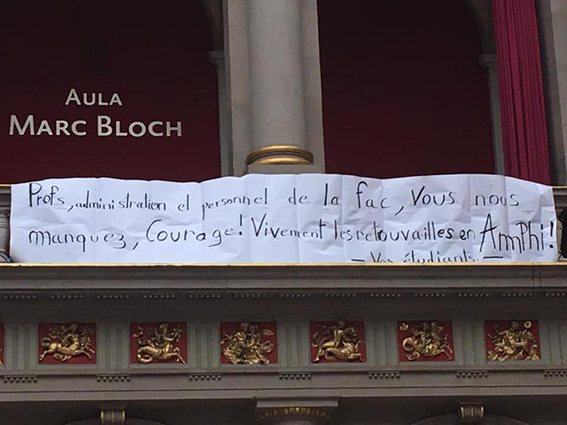 AULA
MARC BLOCH
Profs, administration et personnel de la fac, Vous nous
manquez, Courage! Vivement les retouvailles en AmPhi!
– Vos étudiants –